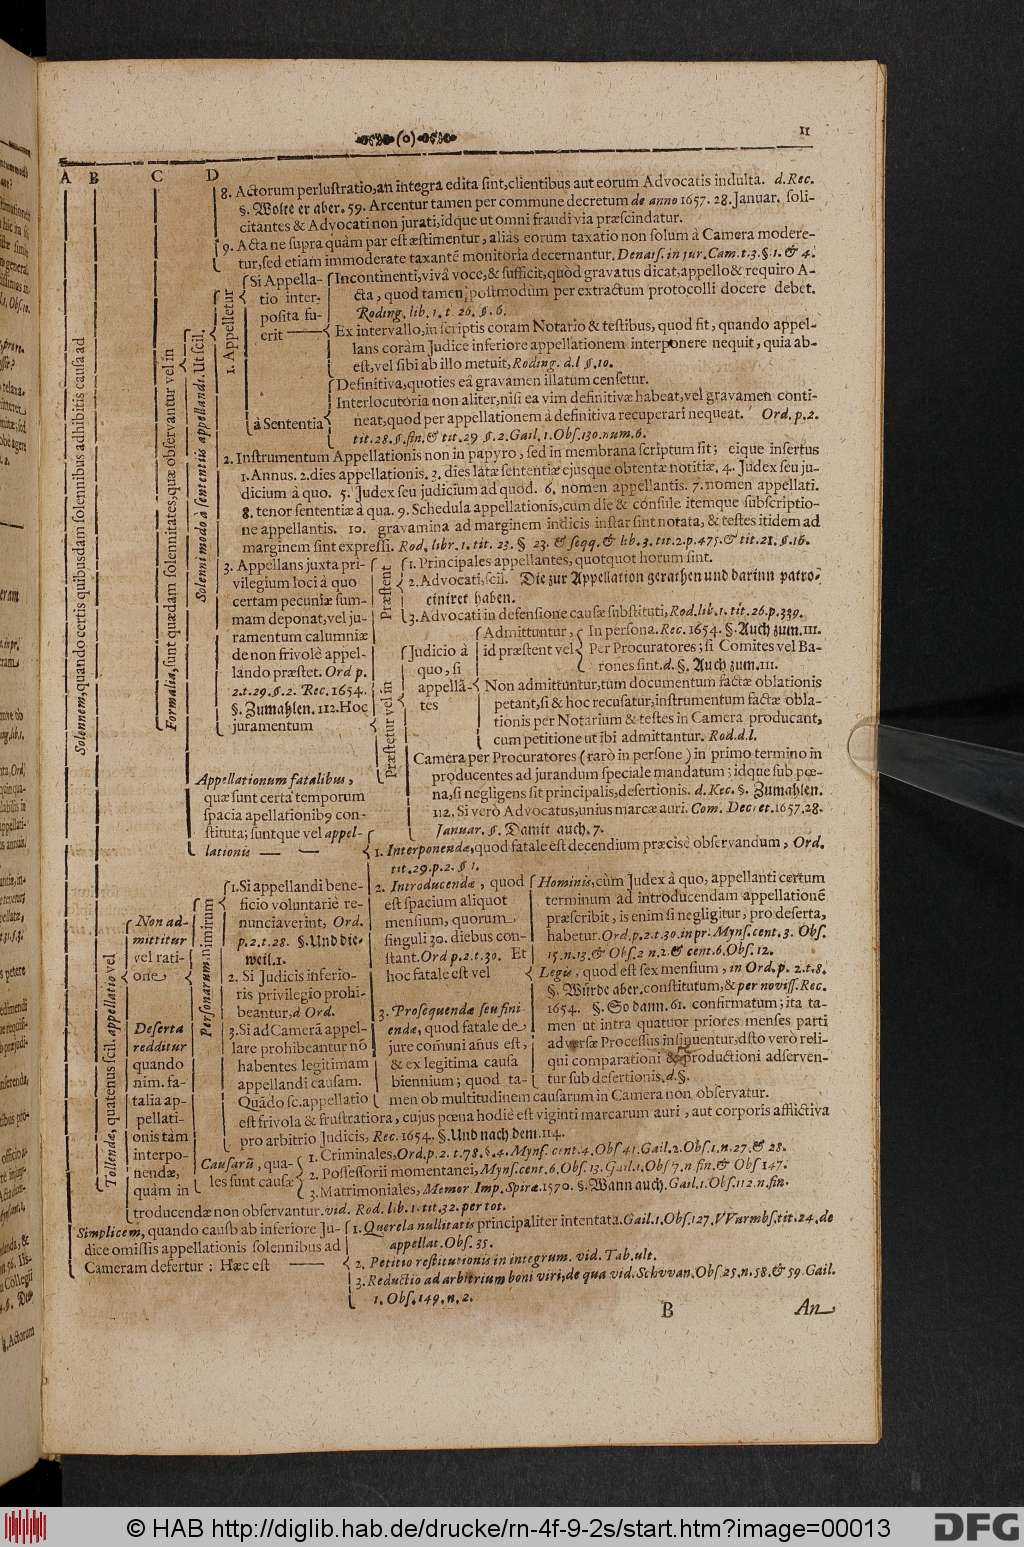 (o)
11
A B C D
8. Actorum perlustratio, an integra edita sint, clientibus aut eorum Advocatis indulta. d. Rec.
§. Wolte er aber. 59. Arcentur tamen per commune decretum de anno 1657. 28. Januar. soli-
citantes & Advocati non jurati, idque ut omni fraudi via præscindatur.
9. Acta ne supra quàm par est æstimentur, aliàs eorum taxatio non solum à Camera modere-
tur, sed etiam immoderate taxantē monitoria decernantur. Denais. in jur. Cam. t. 3. §. 1. & 4.
Solennem, quando certis quibusdam solennibus adhibitis causa ad
Formalia, sunt quædam solennitates, quæ observantur vel in
Solenni modo à sententiis appellandi. Ut scil.
1. Appelletur
Si Appella-
tio inter-
posita fu-
erit
Incontinenti, vivâ voce, & sufficit, quòd gravatus dicat, appello & requiro A-
cta, quod tamen postmodum per extractum protocolli docere debet.
Roding. lib. 1. t. 26. §. 6.
Ex intervallo, in scriptis coram Notario & testibus, quod fit, quando appel-
lans coràm Judice inferiore appellationem interponere nequit, quia ab-
est, vel sibi ab illo metuit, Roding. d. l. §. 10.
à Sententia
Definitiva, quoties eâ gravamen illatum censetur.
Interlocutoria non aliter, nisi ea vim definitivæ habeat, vel gravamen conti-
neat, quod per appellationem à definitiva recuperari nequeat. Ord. p. 2.
tit. 28. §. fin. & tit. 29 §. 2. Gail. 1. Obs. 130. num. 6.
2. Instrumentum Appellationis non in papyro, sed in membrana scriptum sit; eique insertus
1. Annus. 2. dies appellationis. 3. dies latæ sententiæ ejusque obtentæ notitiæ. 4. Judex seu ju-
dicium à quo. 5. Judex seu judicium ad quod. 6. nomen appellantis. 7. nomen appellati.
8. tenor sententiæ à qua. 9. Schedula appellationis, cum die & consule itemque subscriptio-
ne appellantis. 10. gravamina ad marginem indicis instar sint notata, & testes itidem ad
marginem sint expressi. Rod. libr. 1. tit. 23. § 23. & seqq. & lib. 3. tit. 2. p. 475. & tit. 21. §. 16.
3. Appellans juxta pri-
vilegium loci à quo
certam pecuniæ sum-
mam deponat, vel ju-
ramentum calumniæ
de non frivolè appel-
lando præstet. Ord p.
2. t. 29. §. 2. Rec. 1654.
§. Zumahlen. 112. Hoc
juramentum
Præstent
1. Principales appellantes, quotquot horum sint.
2. Advocati, scil. Die zur Appellation gerathen und darinn patro-
ciniret haben.
3. Advocati in defensione causæ substituti, Rod. lib. 1. tit. 26. p. 339.
Præstetur vel in
Judicio à
quo, si
appellā-
tes
Admittuntur,
id præstent vel
In persona. Rec. 1654. §. Auch zum. 111.
Per Procuratores; si Comites vel Ba-
rones sint. d. §. Auch zum. 111.
Non admittuntur, tum documentum factæ oblationis
petant, si & hoc recusatur, instrumentum factæ obla-
tionis per Notarium & testes in Camera producant,
cum petitione ut ibi admittantur. Rod. d. l.
Camera per Procuratores (rarò in persone) in primo termino in
producentes ad jurandum speciale mandatum; idque sub pœ-
na, si negligens sit principalis, desertionis. d. Rec. §. Zumahlen.
112. Si verò Advocatus, unius marcæ auri. Com. Decret. 1657. 28.
Januar. §. Damit auch. 7.
Appellationum fatalibus,
quæ sunt certa temporum
spacia apellationibꝰ con-
stituta; suntque vel appel-
lationis
1. Interponendæ, quod fatale est decendium præcisè observandum, Ord.
tit. 29. p. 2. § 1.
2. Introducendæ, quod
est spacium aliquot
mensium, quorum
singuli 30. diebus con-
stant. Ord p. 2. t. 30. Et
hoc fatale est vel
Hominis, cùm Judex à quo, appellanti certum
terminum ad introducendam appellationē
præscribit, is enim si negligitur, pro deserta,
habetur. Ord. p. 2. t. 30. in pr: Myns. cent. 3. Obs.
15. n. 13. & Obs. 2 n. 2. & cent. 6. Obs. 12.
Legis, quod est sex mensium, in Ord. p. 2. t. 8.
§. Würde aber. constitutum, & per noviss. Rec.
1654. §. So dann. 61. confirmatum; ita ta-
men ut intra quatuor priores menses parti
adversæ Processus insinuentur, dsto verò reli-
qui comparationi & productioni adserven-
tur sub desertionis. d. §.
3. Prosequendæ seu fini
endæ, quod fatale de
jure com̄uni añus est,
& ex legitima causa
biennium; quod ta-
men ob multitudinem causarum in Camera non observatur.
Tollendæ, quatenus scil. appellatio vel
Non ad-
mittitur
vel rati-
one
Personarum, nimirum
1. Si appellandi bene-
ficio voluntariè re-
nunciaverint, Ord.
p. 2. t. 28. §. Und die-
weil. 1.
2. Si Judicis inferio-
ris privilegio prohi-
beantur, d Ord.
3. Si ad Camerā appel-
lare prohibeantur nō
habentes legitimam
appellandi causam.
Quādo sc. appellatio
est frivola & frustratiora, cujus pœna hodiè est viginti marcarum auri, aut corporis afflictiva
pro arbitrio Judicis, Rec. 1654. §. Und nach dem. 114.
Causarū, qua-
les sunt causæ
1. Criminales, Ord. p. 2. t. 78. §. 4. Myns. cent. 4. Obs 41. Gail. 2. Obs. 1. n. 27. & 28.
2. Possessorii momentanei, Myns. cent. 6. Obs. 13. Gail. 1. Obs 7. n fin. & Obs 147.
3. Matrimoniales, Memor Imp. Spiræ. 1570. §. Wann auch. Gail. 1. Obs. 112. n. fin.
Deserta
redditur
quando
nim. fa-
talia ap-
pellati-
onis tàm
interpo-
nendæ,
quàm in
troducendæ non observantur. vid. Rod. lib. 1. tit. 32. per tot.
Simplicem, quando causb ab inferiore Ju-
dice omissis appellationis solennibus ad
Cameram defertur: Hæc est
1. Querela nullitatis principaliter intentata. Gail. 1. Obs. 127. VVurmbs. tit. 24. de
appellat. Obs. 35.
2. Petitio restitutionis in integrum. vid. Tab. ult.
3. Reductio ad arbitrium boni viri, de qua vid. Schvvan. Obs. 25. n. 58. & 59. Gail.
1. Obs. 149. n. 2.
B
An-
© HAB http://diglib.hab.de/drucke/rn-4f-9-2s/start.htm?image=00013
DFG